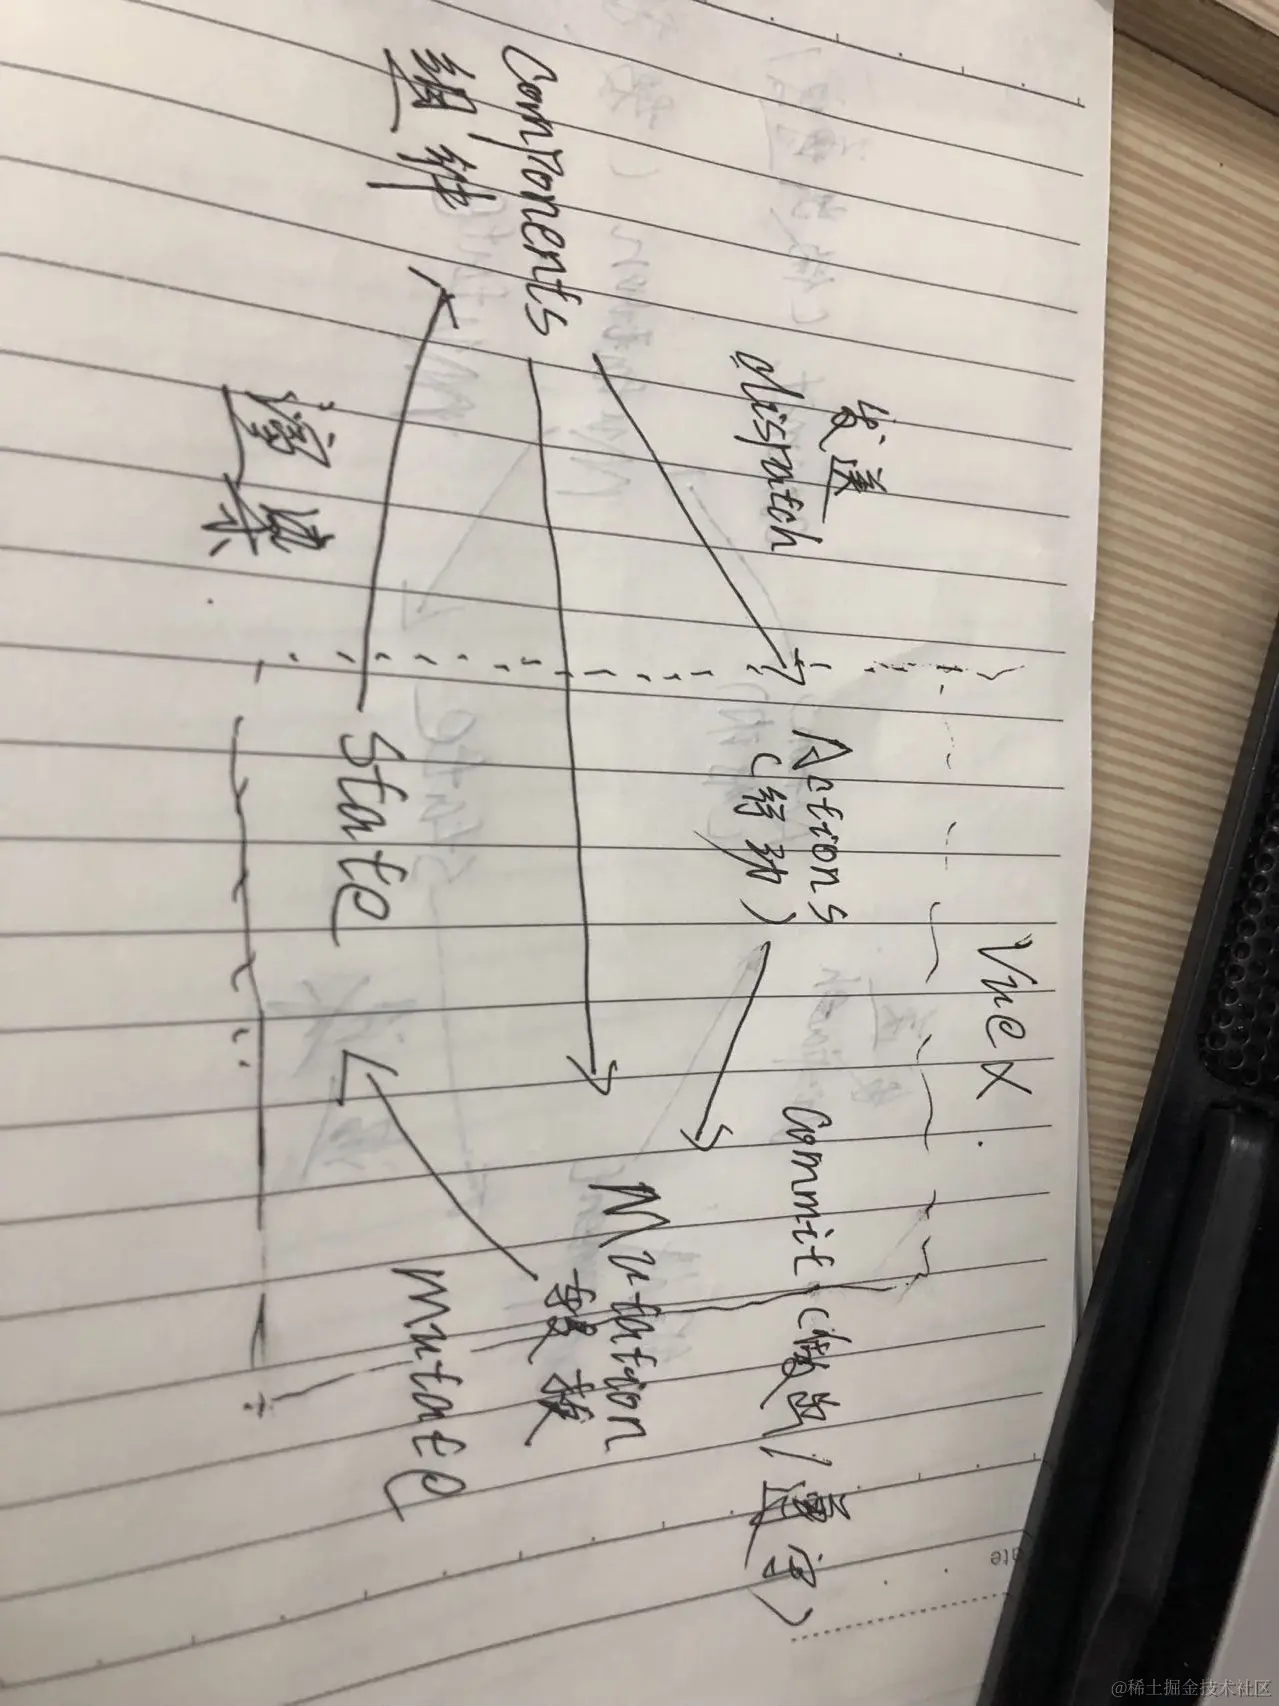 Vuex
发送
dispatch
Actions
(行动)
Commit (做出/遵守)
Components
组件
Mutation
mutate
State
渲染
@稀土掘金技术社区